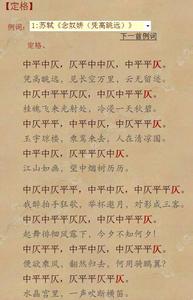 【定格】
例词: 1:苏轼《念奴娇（凭高眺远）》
下一首例词
定格。
中平中仄，仄平中中仄，中平平仄。
凭高眺远，见长空万里，云无留迹。
中仄中平平仄仄，中仄中平平仄。
桂魄飞来光射处，冷浸一天秋碧。
中仄平平，中平中仄，中仄平平仄。
玉宇琼楼，乘鸾来去，人在清凉国。
中平中仄，中平平仄平仄。
江山如画，望中烟树历历。
中仄中仄平平，中平中仄，中仄平平仄。
我醉拍手狂歌，举杯邀月，对影成三客。
中仄中平平仄仄，中仄中平平仄。
起舞徘徊风露下，今夕不知何夕！
中仄平平，中平中仄，中仄平平仄。
便欲乘风，翻然归去，何用骑鹏翼？
中平平仄，仄平平仄平仄。
水晶宫里，一声吹断横笛。